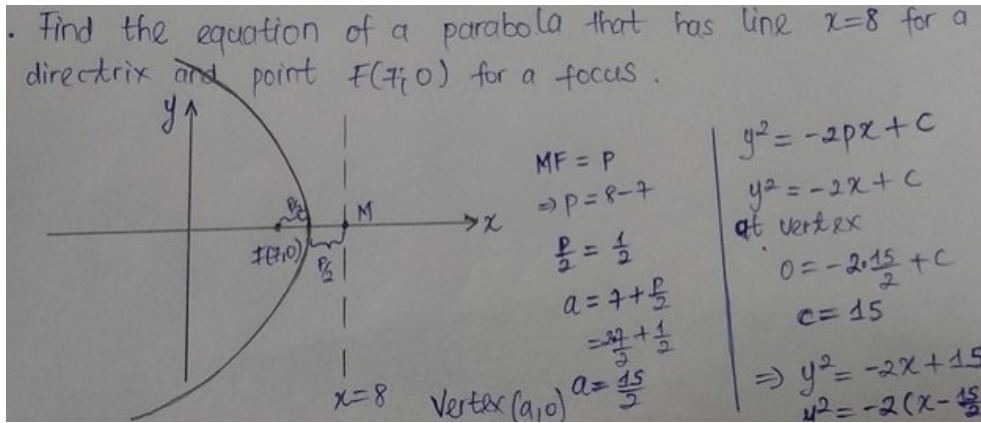 . Find the equation of a parabola that has line x=8 for a
directrix and point F(7;0) for a focus.
y
P/2
M
x
F(7,0)
P/2
x=8
MF = P
⇒ p = 8-7
P/2 = 1/2
a = 7 + P/2
+ 1/2
Vertex (a,0) a = 15/2
y² = -2px + C
y² = -2x + C
at vertex
0 = -2·15/2 + C
c = 15
⇒ y² = -2x + 15
y² = -2(x - 15/2